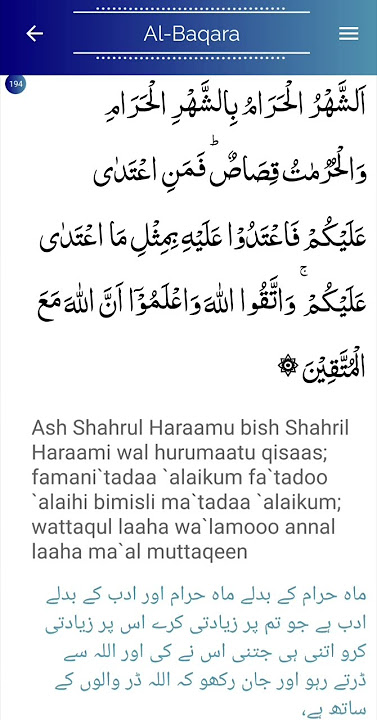 Al-Baqara
194
اَلشَّهْرُ الْحَرَامُ بِالشَّهْرِ الْحَرَامِ
وَالْحُرُمٰتُ قِصَاصٌ ؕ فَمَنِ اعْتَدٰى
عَلَيْكُمْ فَاعْتَدُوْا عَلَيْهِ بِمِثْلِ مَا اعْتَدٰى
عَلَيْكُمْ ۚ وَاتَّقُوا اللّٰهَ وَاعْلَمُوْٓا اَنَّ اللّٰهَ مَعَ
الْمُتَّقِيْنَ ۞
Ash Shahrul Haraamu bish Shahril
Haraami wal hurumaatu qisaas;
famani`tadaa `alaikum fa`tadoo
`alaihi bimisli ma`tadaa `alaikum;
wattaqul laaha wa`lamooo annal
laaha ma`al muttaqeen
ماہ حرام کے بدلے ماہ حرام اور ادب کے بدلے
ادب ہے جو تم پر زیادتی کرے اس پر زیادتی
کرو اتنی ہی جتنی اس نے کی اور اللہ سے
ڈرتے رہو اور جان رکھو کہ اللہ ڈر والوں کے
ساتھ ہے،